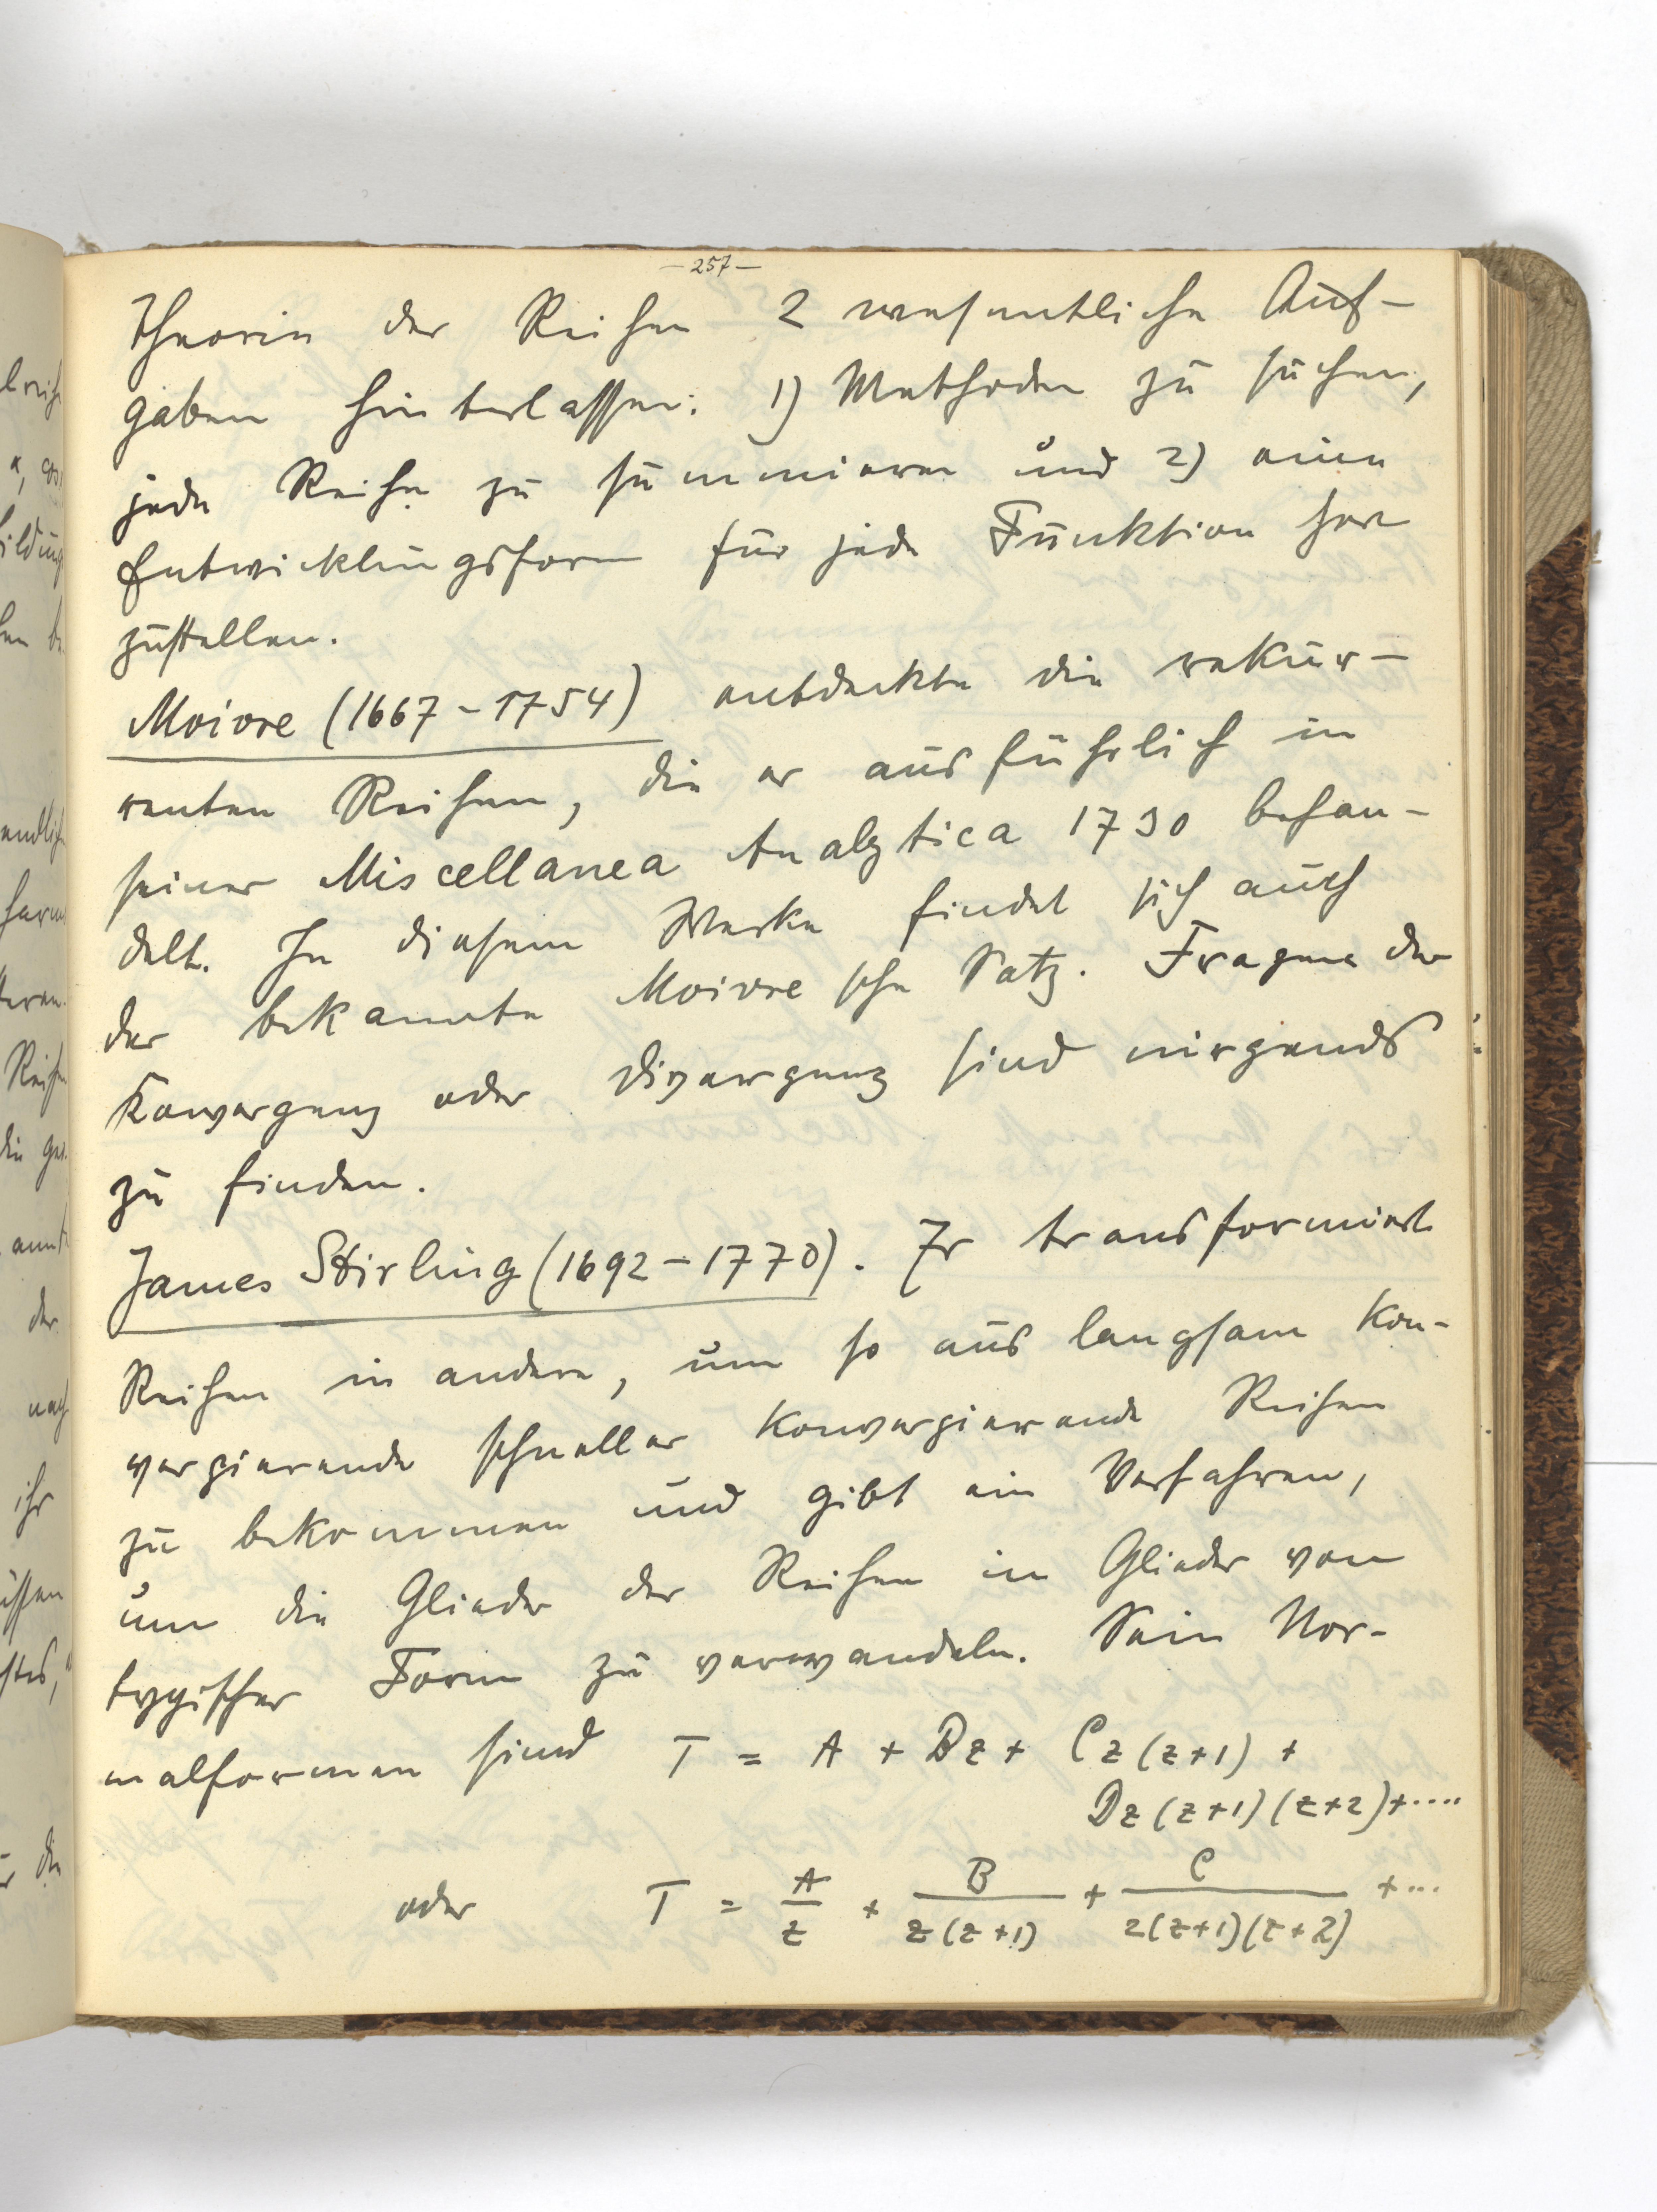 - 257 -
Theorie der Reihen 2 wesentliche Auf-
gaben hinterlassen: 1) Methoden zu suchen,
jede Reihe zu summieren und 2) eine
Entwicklungsform für jede Funktion her
zustellen.
Moivre (1667-1754) entdeckte die rekur-
renten Reihen, die er ausführlich in
seiner Miscellanea Analytica 1730 behan-
delt. In diesem Werke findet sich auch
der bekannte Moivresche Satz. Fragen der
Konvergenz oder Divergenz sind nirgends
zu finden.
James Stirling (1692-1770). Er transformiert
Reihen in andere, um so aus langsam kon-
vergierende schneller konvergierende Reihen
zu bekommen und gibt ein Verfahren,
um die Glieder der Reihen in Glieder von
typischer Form zu verwandeln. Sein Nor-
malformen sind T = A + Bz + Cz(z+1) +
Dz(z+1)(z+2)+....
oder T = A/z + B/z(z+1) + C/z(z+1)(z+2) +...